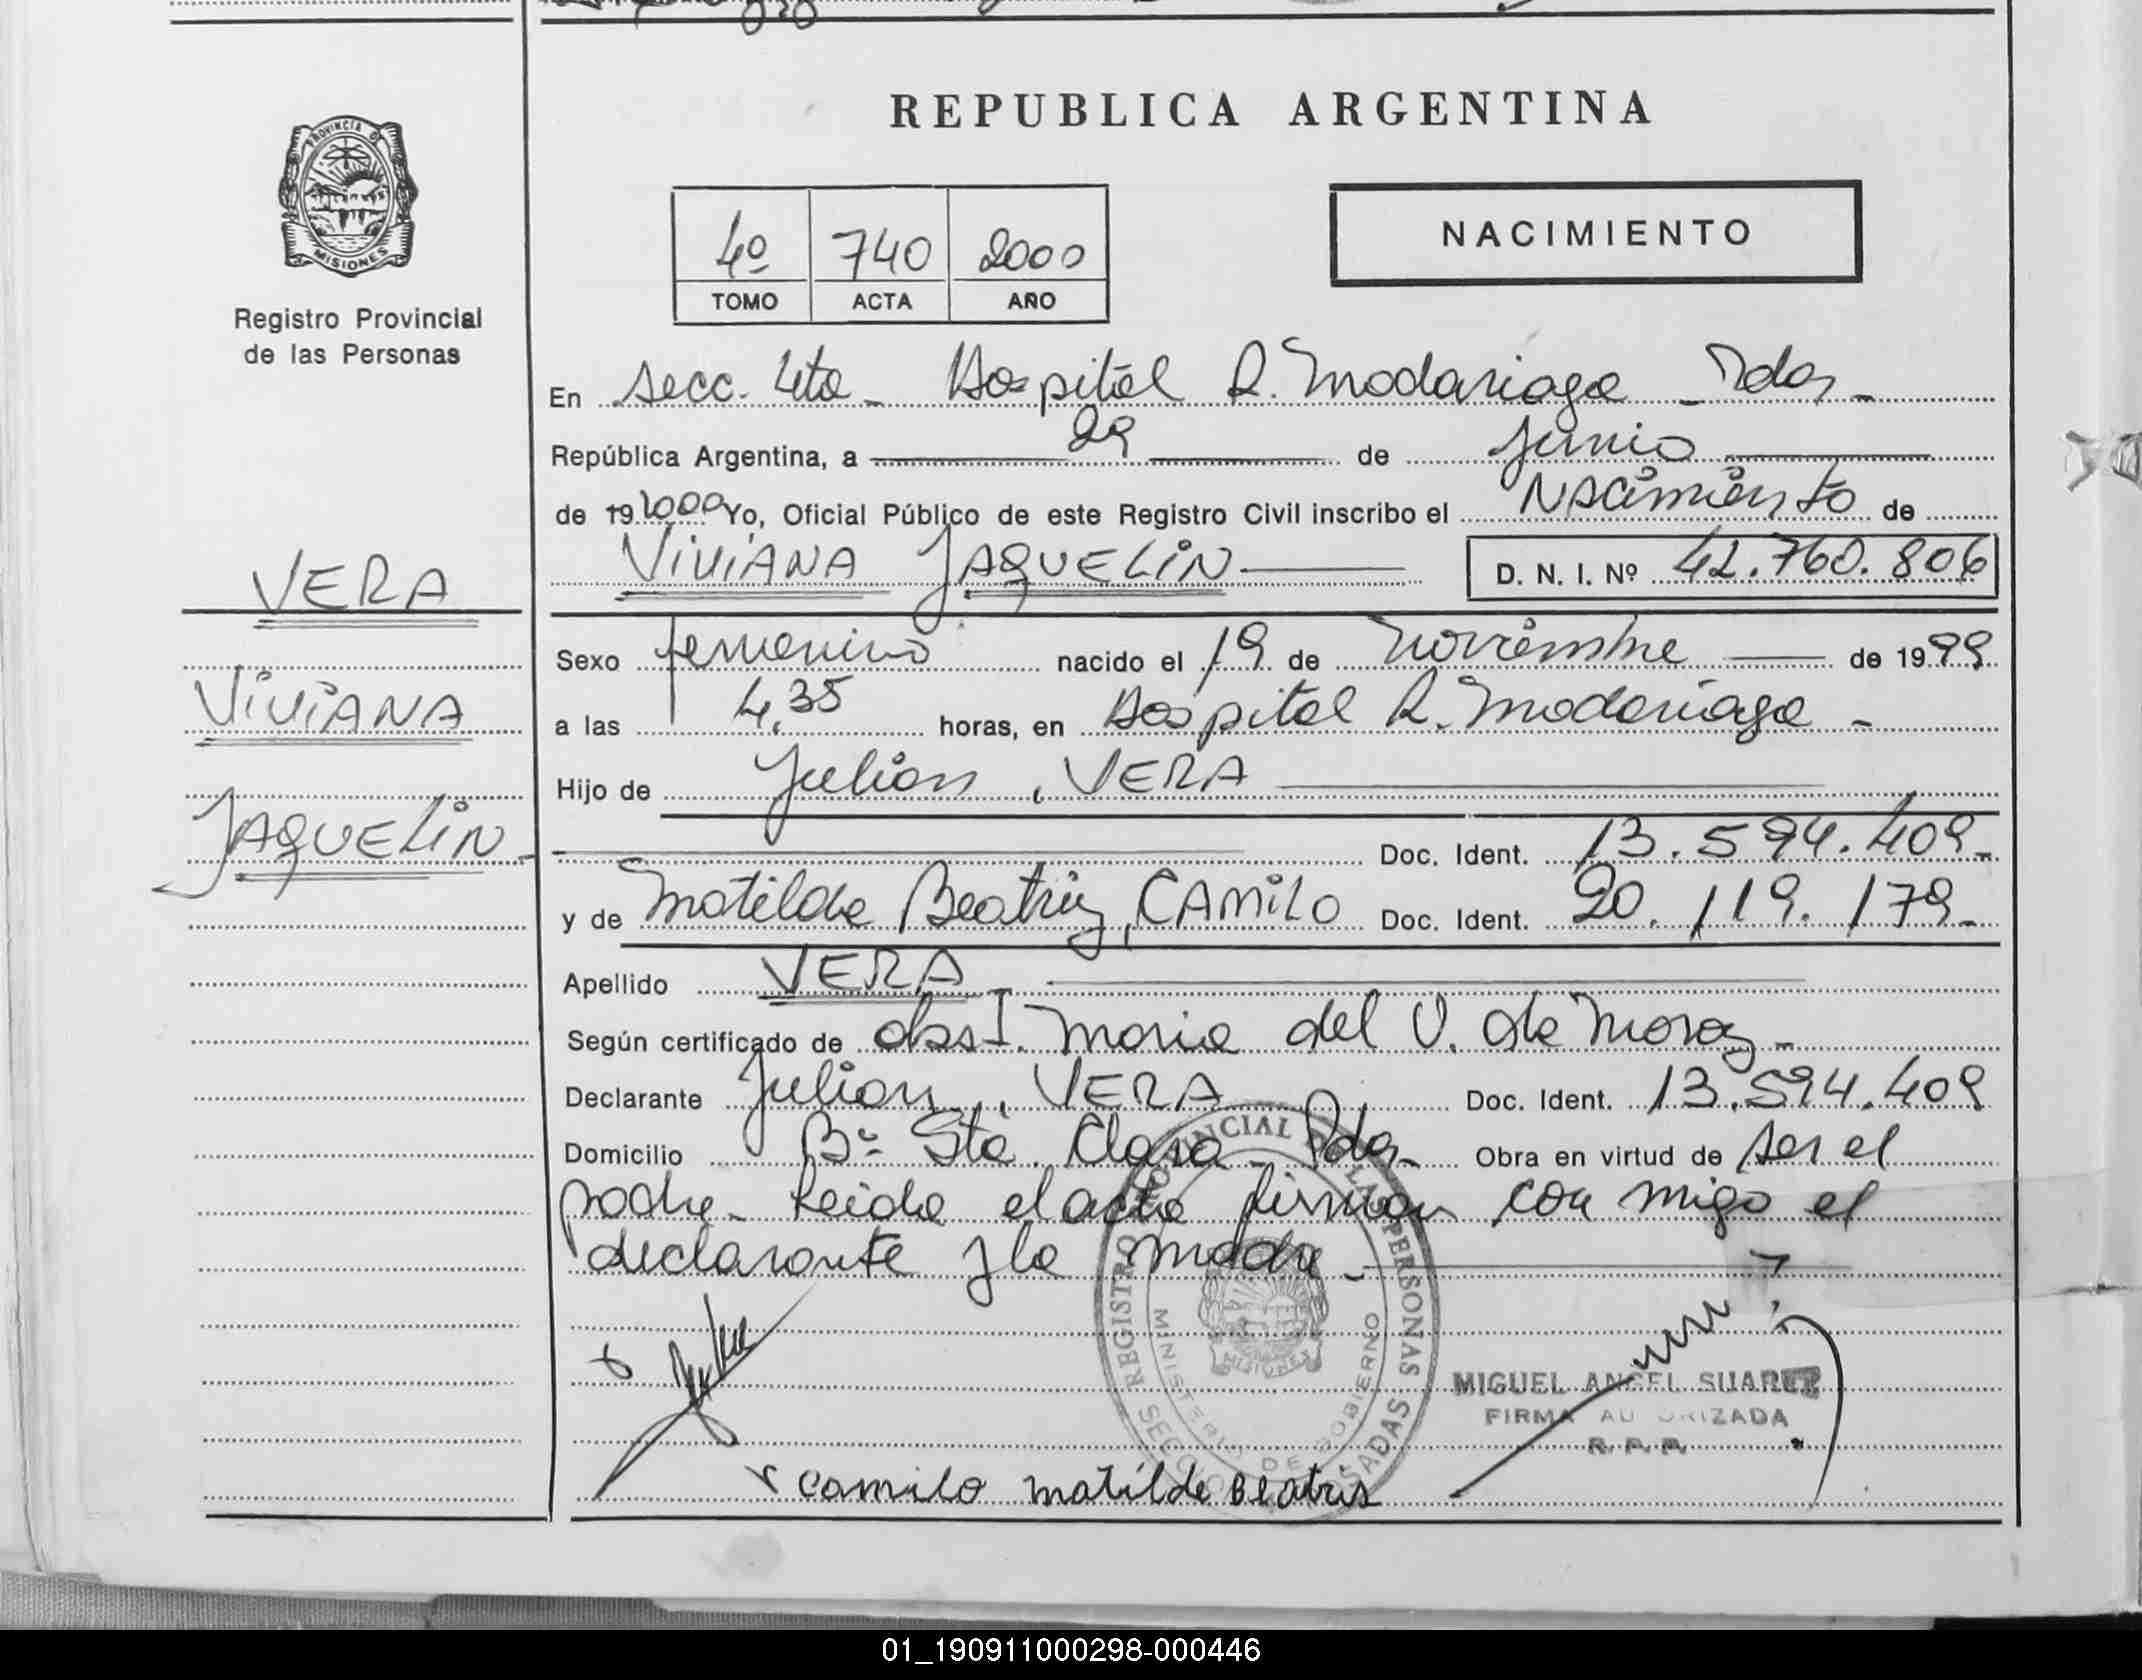 REPUBLICA ARGENTINA
PROVINCIA DE
MISIONES
Registro Provincial
de las Personas
4º 740 2000
TOMO ACTA AÑO
NACIMIENTO
En secc. 4ta - Hospital R. Madariaga - Pdas -
República Argentina, a 29 de Junio
de 19 2000 Yo, Oficial Público de este Registro Civil inscribo el Nacimiento de
VIVIANA JAQUELIN D. N. I. Nº 42.760.806
VERA
VIVIANA
JAQUELIN -
Sexo femenino nacido el 19 de noviembre de 1999
a las 4,35 horas, en Hospital R. Madariaga -
Hijo de Julian, VERA
Doc. Ident. 13.594.409 -
y de Matilde Beatriz, CAMILO Doc. Ident. 20.119.179 -
Apellido VERA
Según certificado de obst. Maria del V. de Moraz -
Declarante Julian, VERA Doc. Ident. 13.594.409
Domicilio Bº Sta. Clara - Pdas - Obra en virtud de ser el
padre - Leida el acta firman con migo el
declarante y la madre -
REGISTRO PROVINCIAL DE LAS PERSONAS
MINISTERIO DE GOBIERNO
MISIONES
SECCION POSADAS
MIGUEL ANGEL SUAREZ
FIRMA AUTORIZADA
R. P. P.
Camilo Matilde Beatris
01_190911000298-000446